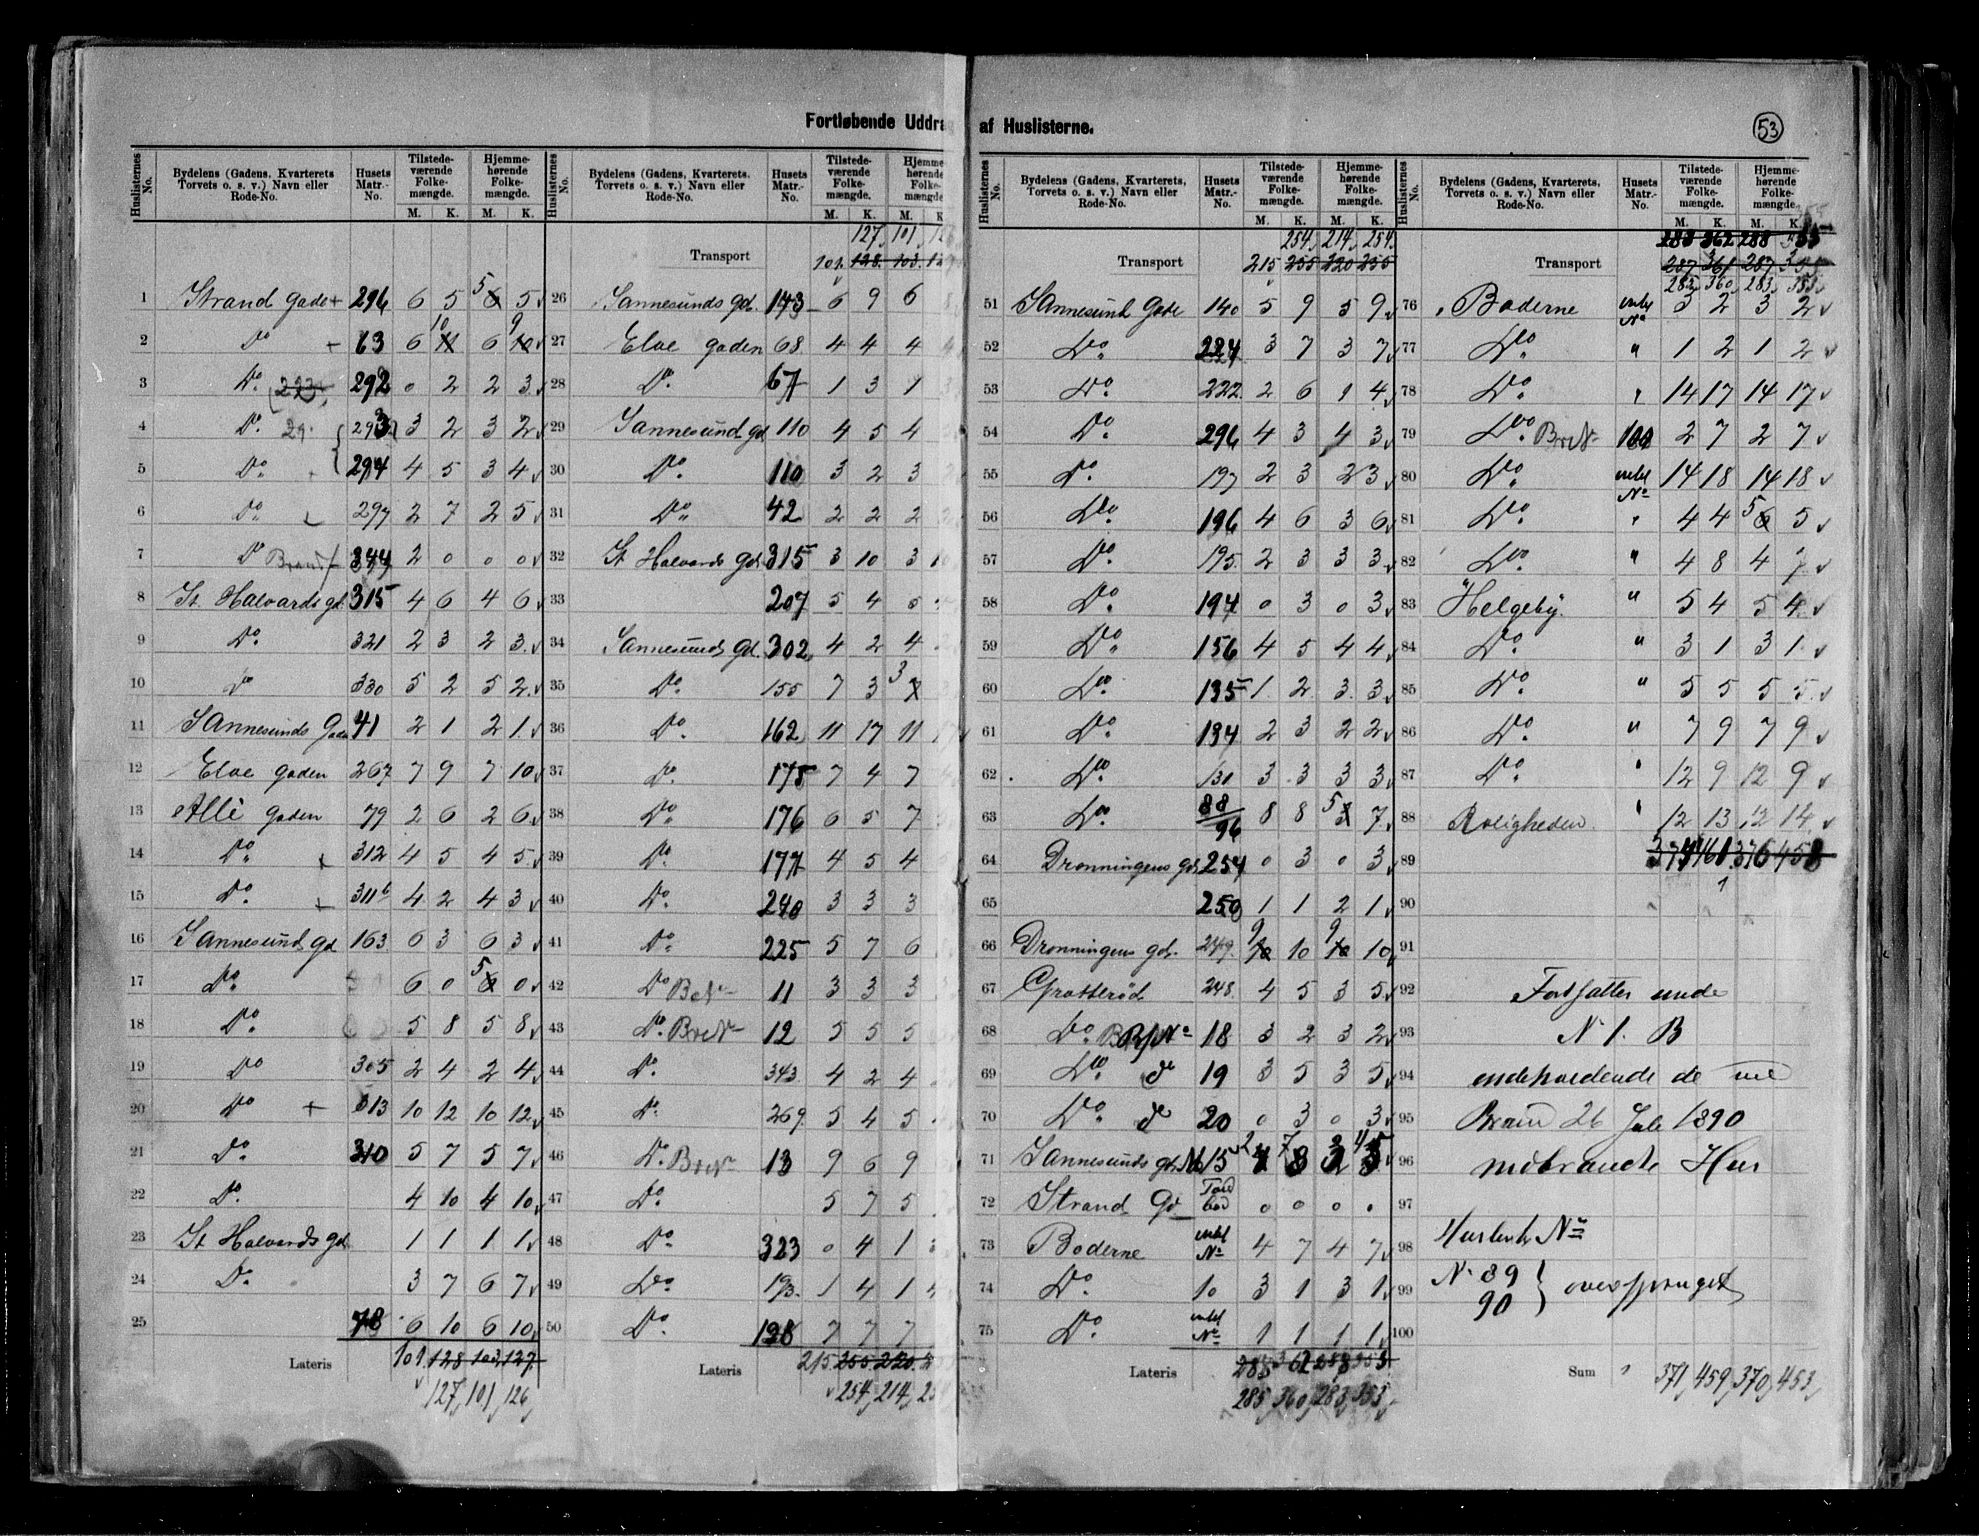 Fortløbende Uddra af Huslisterne.
53
Huslisternes No. | Bydelens (Gadens, Kvarterets, Torvets o. s. v.) Navn eller Rode-No. | Husets Matr.-No. | Tilstedeværende Folkemængde. M. K. | Hjemmehørende Folkemængde. M. K.
1 Strand Gade + 296 6 5 5 6 5
2 Do + 63 6 10 11 6 9 10
3 Do. 293 292 0 2 2 3
4 Do. 29 293 3 2 3 2
5 Do 294 4 5 3 4
6 Do. 297 2 7 2 5
7 Do 344 2 0 0 0
8 St. Halvards gd. 315 4 6 4 6
9 Do. 321 2 3 2 3
10 Do 330 5 2 5 2
11 Sannesunds Gade 41 2 1 2 1
12 Elve gaden 267 7 9 7 10
13 Allé gaden 79 2 6 2 6
14 Do. + 312 4 5 4 5
15 Do. + 311b 4 2 4 3
16 Sannesund gd 163 6 3 6 3
17 Do. 6 0 5 6 0
18 Do. 5 8 5 8
19 Do 305 2 4 2 4
20 Do + 313 10 12 10 12
21 Do. 310 5 7 5 7
22 Do. 4 10 4 10
23 St Halvards gd. 1 1 1 1
24 Do. 3 7 6 7
25 78 6 10 6 10
Lateris 101 128 103 127
127 101 126
Huslisternes No. | Bydelens (Gadens, Kvarterets, Torvets o. s. v.) Navn eller Rode-No. | Husets Matr.-No. | Tilstedeværende Folkemængde. M. K. | Hjemme hørende Folke mængde M. K
127 101
Transport 101 128 103
26 Sannesunds gd. 143 6 9 6
27 Elve gaden 68 4 4 4
28 Do. 67 1 3 1
29 Sannesund gd 110 4 5 4
30 Do. 110 3 2 3
31 Do. 42 2 2 2
32 St Halvards Gd. 315 3 10 3
33 207 5 4
34 Sannesunds Gd. 302 4 2 4
35 Do. 155 7 3 3
36 Do. 162 11 17 11
37 Do. 175 7 4 7
38 Do. 176 6 5 7
39 Do. 177 4 5 4
40 Do. 240 3 3 3
41 Do. 225 5 7 6
42 Do 11 3 3 3
43 Do. 12 5 5 5
44 Do. 343 4 2 4
45 Do. 269 5 4 5
46 Do. 13 9 6 9
47 Do. 5 7 5
48 Do. 323 0 4 1
49 Do 193 1 4 1
50 Do. 198 7 7 7
Lateris 215 255 220
254 214
Huslisternes No. | Bydelens (Gadens, Kvarterets, Torvets o. s. v.) Navn eller Rode-No. | Husets Matr.-No. | Tilstedeværende Folkemængde. M. K. | Hjemmehørende Folkemængde. M. K.
254 214 254
Transport 215 255 220 255
51 Sannesund Gade 140 5 9 5 9
52 Do. 224 3 7 3 7
53 Do. 222 2 6 1 4
54 Do. 296 4 3 4 3
55 Do. 197 2 3 2 3
56 Do. 196 4 6 3 6
57 Do. 195 2 3 3 3
58 Do. 194 0 3 0 3
59 Do. 156 4 5 4 4
60 Do. 135 1 2 3 3
61 Do. 134 2 3 2 2
62 Do. 131 3 3 3 3
63 Do. 88/96 8 8 5 7
64 Dronningens gd. 254 0 3 0 3
65 250 1 1 2 1
66 Dronningens gd. 249 9 10 10 9 10 10
67 Grotterød 248 4 5 3 5
68 Do. 18 3 2 3 2
69 Do. do 19 3 5 3 5
70 Do. do 20 0 3 0 3
71 Sannesunds gd. 15 2 7 8 3 4 5
72 Strand Gd 0 0 0 0
73 Boderne No 4 7 4 7
74 Do. 10 3 1 3 1
75 Do. No 1 1 1 1
Lateris 285 362 288 353
285 360 283 353
Huslisternes No. | Bydelens (Gadens, Kvarterets, Torvets o. s. v.) Navn eller Rode-No. | Husets Matr.-No. | Tilstedeværende Folkemængde. M. K. | Hjemmehørende Folkemængde. M. K.
283 362 288
Transport 287 361 287
283 360 283 353
76 Boderne No 3 2 3 2
77 Do. " 1 2 1 2
78 Do. " 14 17 14 17
79 Do. 100 2 7 2 7
80 Do. No 14 18 14 18
81 Do. " 4 4 5 6 5
82 Do. " 4 8 4 7
83 Helgeby. " 5 4 5 4
84 Do. " 3 1 3 1
85 Do. " 5 5 5 5
86 Do. " 7 9 7 9
87 Do. " 12 9 12 9
88 Roligheden " 12 13 12 14
89 374 461 376 458
90
91
92 Fortsatter unde
93 N 1. B
94 indeholdende de
95 26 Juli 1890
96 Hus
97
98 No
99 N 89
90 } oversprunget
100
Sum 371 459 370 453